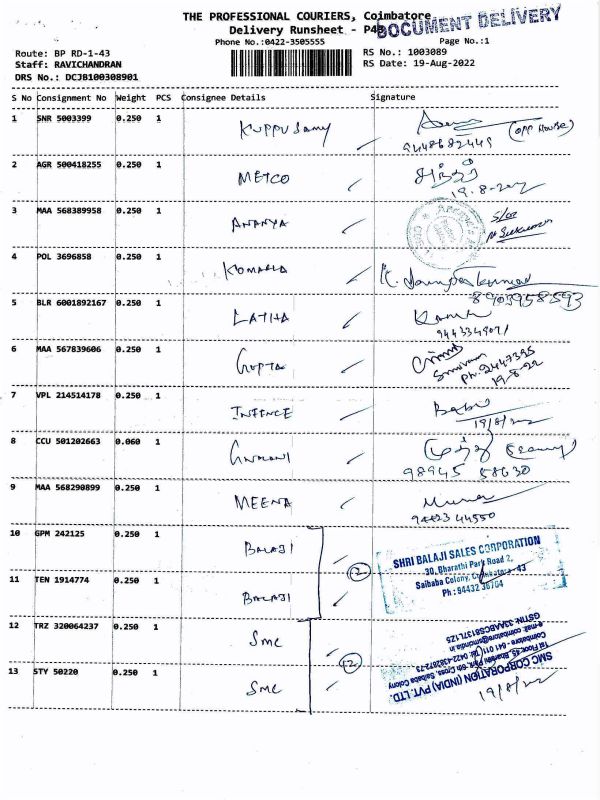 THE PROFESSIONAL COURIERS, Coimbatore
DOCUMENT DELIVERY
Delivery Runsheet - P4
Phone No.:0422-3505555
Page No.:1
Route: BP RD-1-43
RS No.: 1003089
Staff: RAVICHANDRAN
RS Date: 19-Aug-2022
DRS No.: DCJB100308901
S No Consignment No Weight PCS Consignee Details Signature
1 SNR 5003399 0.250 1 Kuppusamy (opp House)
9448682449
2 AGR 500418255 0.250 1 METCO
19.8-22
3 MAA 568389958 0.250 1 ANANYA
4 POL 3696858 0.250 1 KOMALA
8903958593
5 BLR 6001892167 0.250 1 LATHA
6 MAA 567839606 0.250 1 GUPTA
Ph: 2447395
19-8-22
7 VPL 214514178 0.250 1 Babu
19/8/22
8 CCU 501202663 0.060 1
98945 58630
9 MAA 568290899 0.250 1 MEENA
94423 44550
10 GPM 242125 0.250 1 BALAJI
11 TEN 1914774 0.250 1 BALAJI
2
SHRI BALAJI SALES CORPORATION
30, Bharathi Park Road 2,
Saibaba Colony, Coimbatore - 43
Ph : 94432 36704
12 TRZ 320064237 0.250 1 SMC
13 STY 50220 0.250 1 SMC
2
SMC CORPORATION (INDIA) PVT. LTD.
GSTIN: 33AABCS8137L1Z5
19/8/22